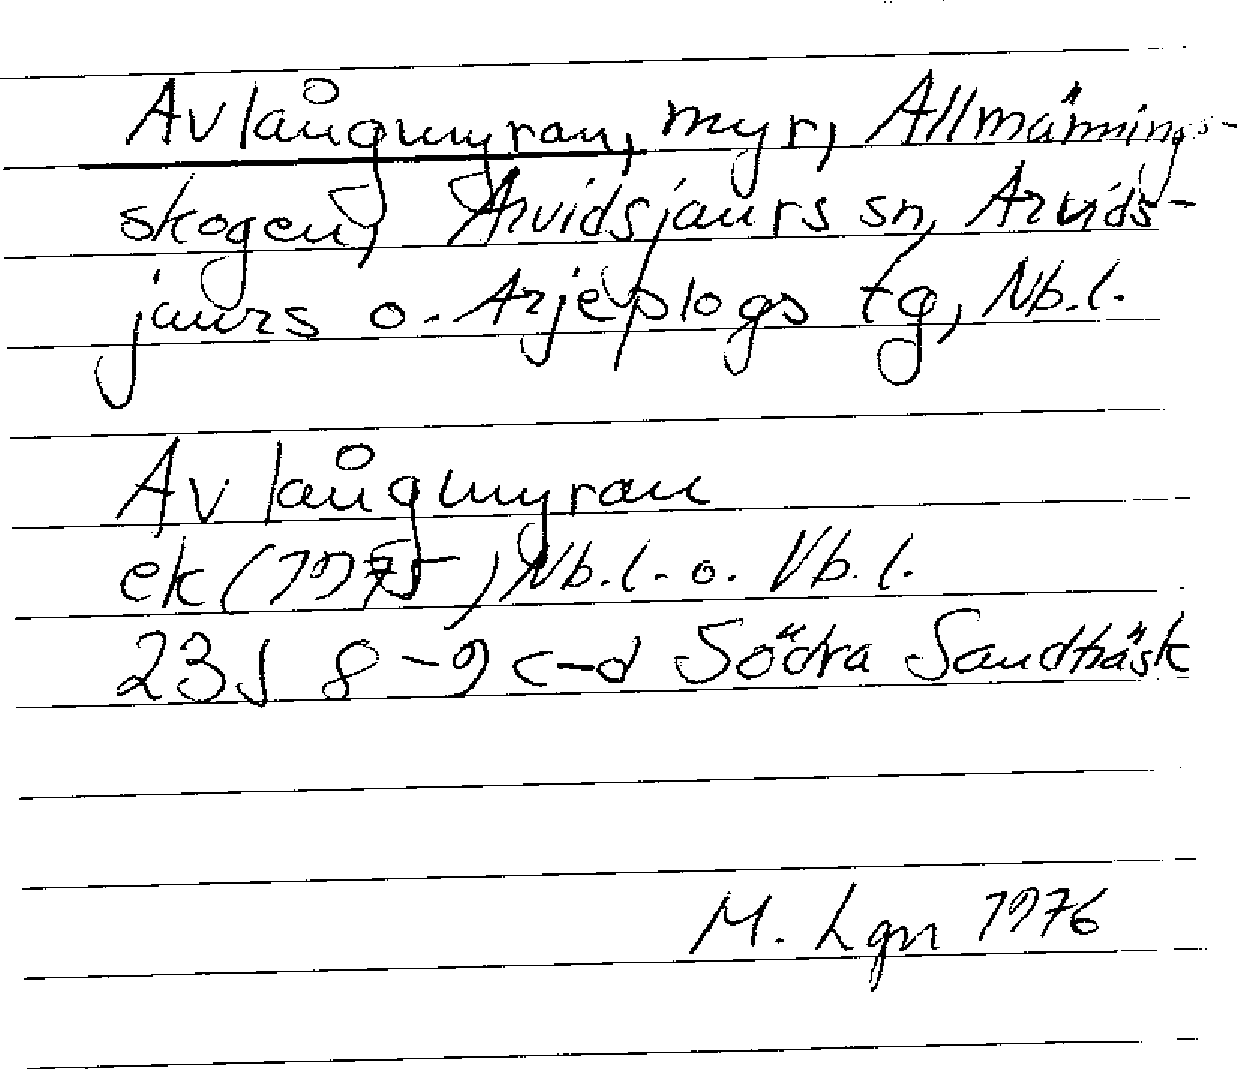 Avlångmyran, myr, Allmännings-
skogen, Arvidsjaurs sn, Arvids-
jaurs o. Arjeplogs tg, Nb.l.
Avlångmyran
ek (1975) Nb.l. o. Vb.l.
23J 8-9 c-d Södra Sandträsk
M. Lgn 1976